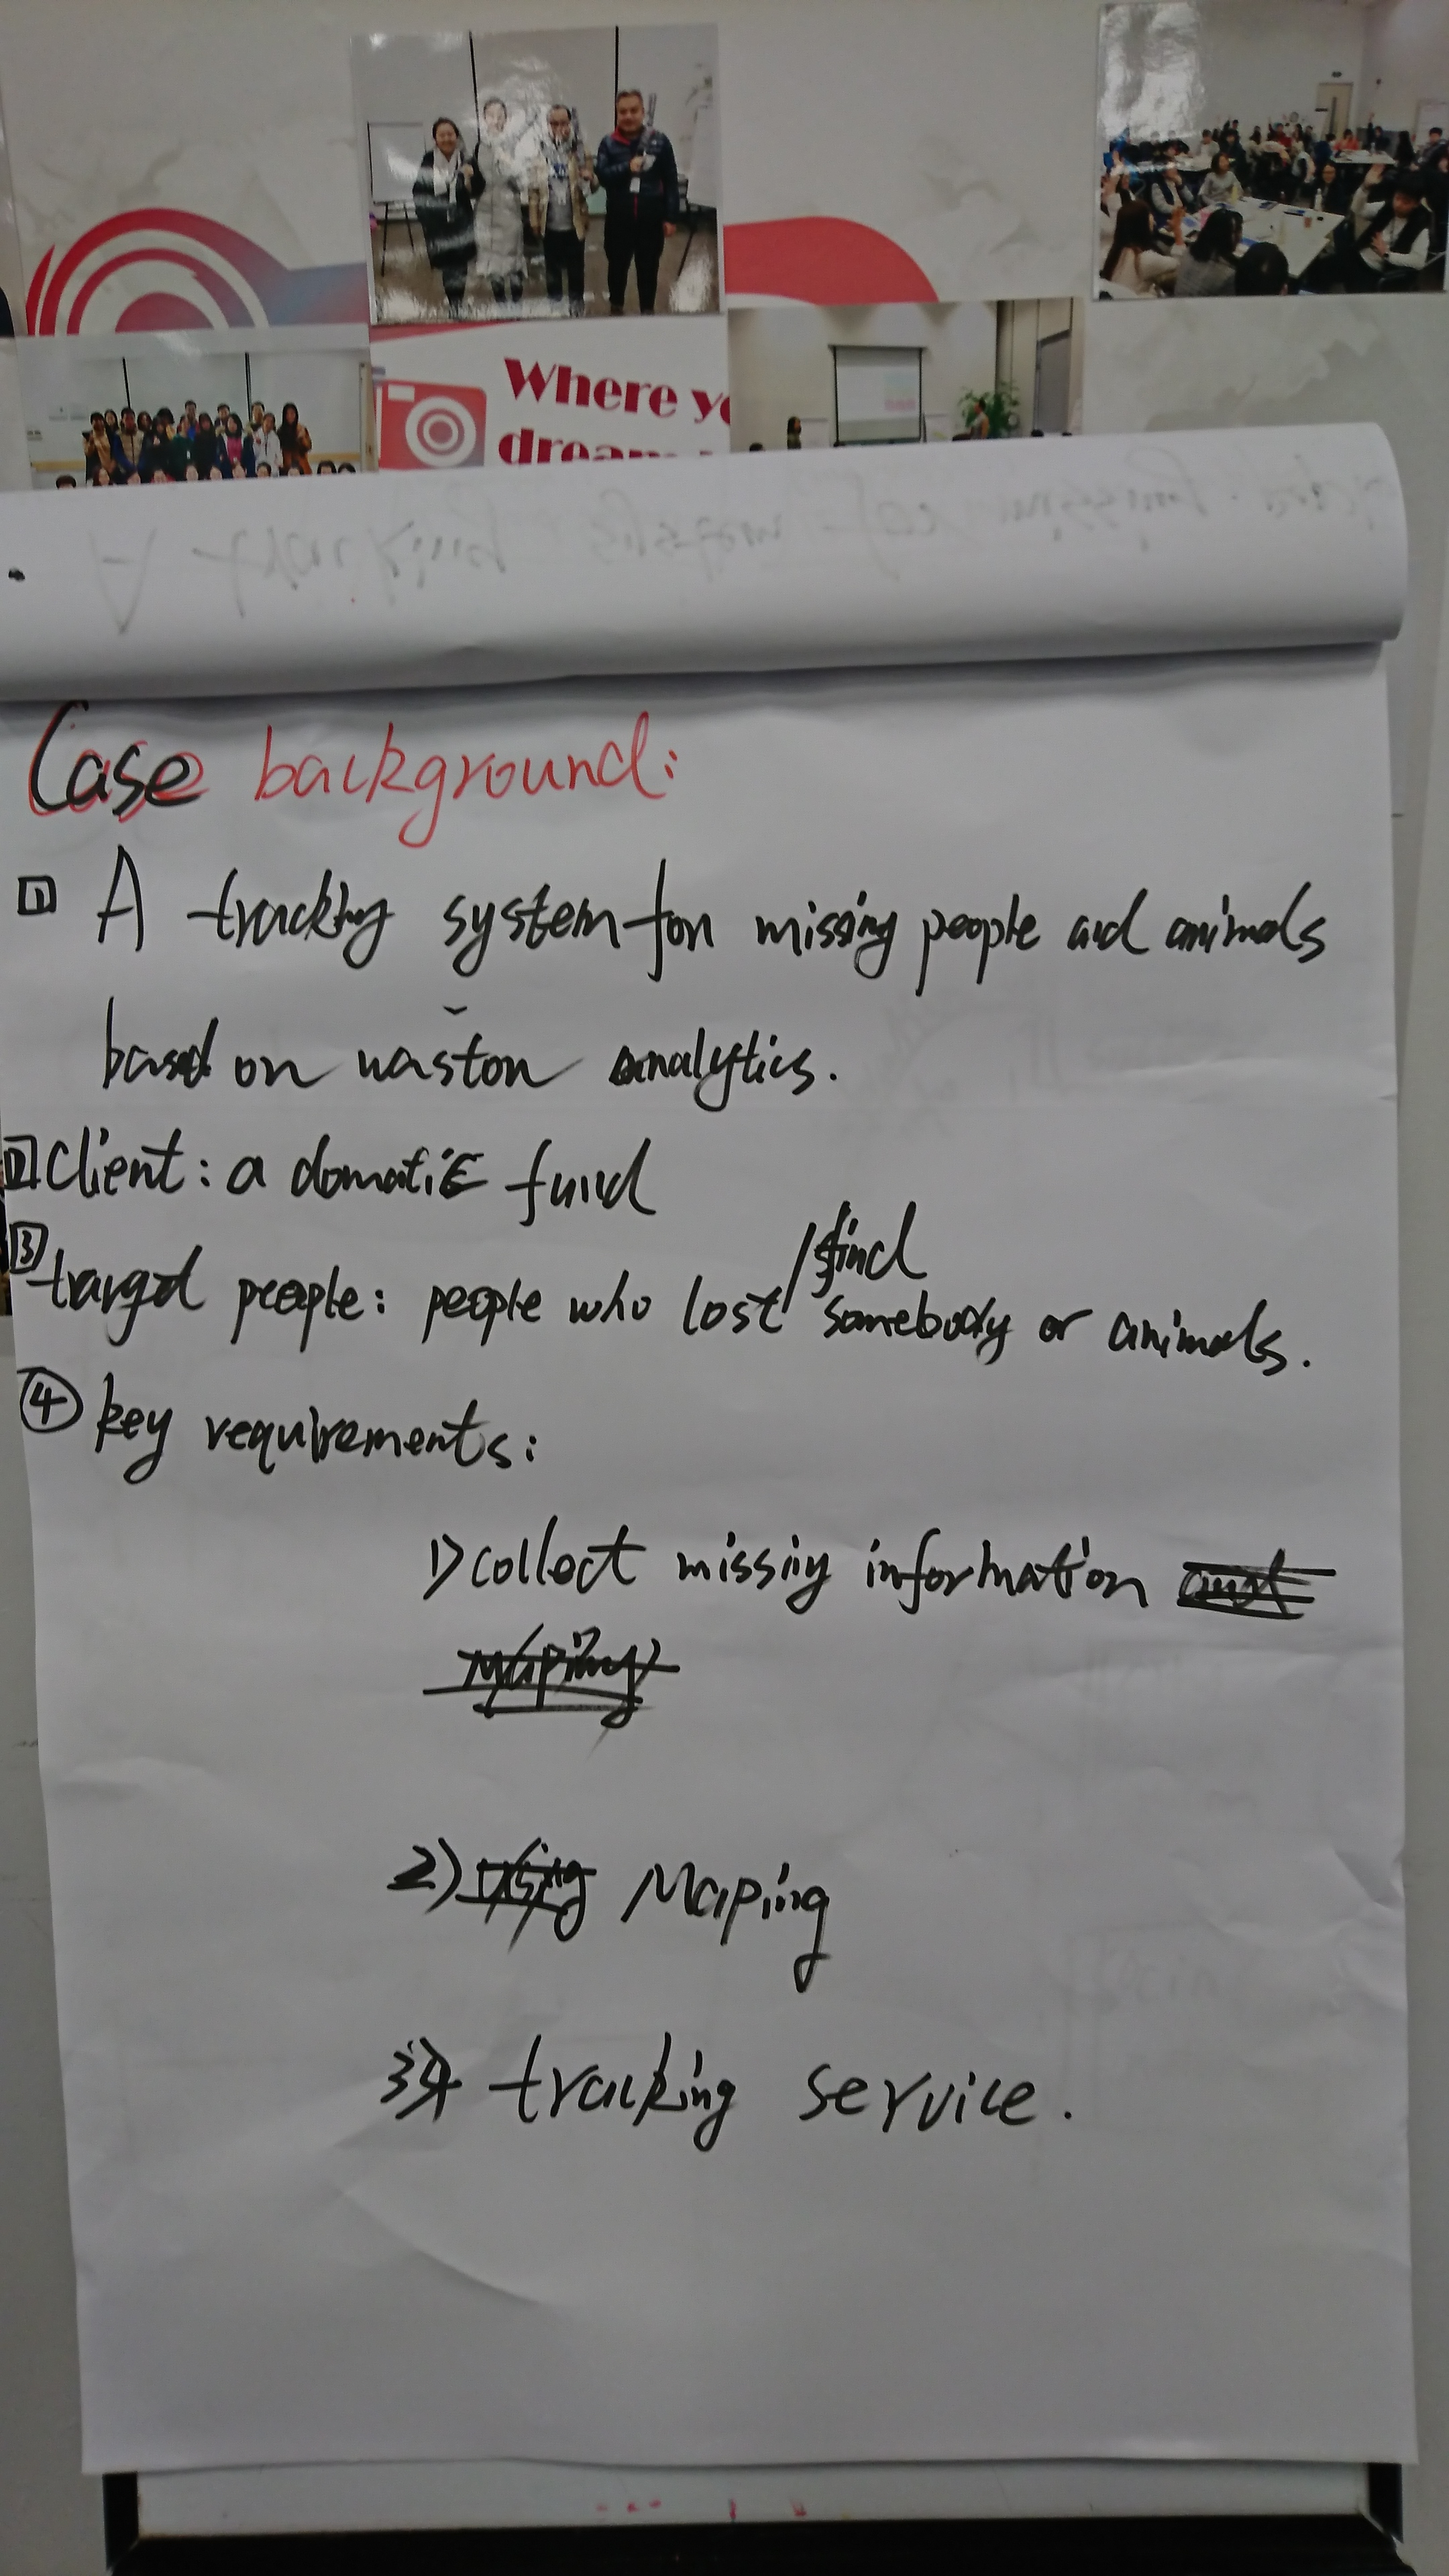 Where yo
dream
Case background:
1 A tracking system for missing people and animals
based on waston analytics.
2 Client: a domatic fund
3 target people: people who lost/find somebody or animals.
4 key requirements:
1) collect missing information
2) Maping
3) tracking service.